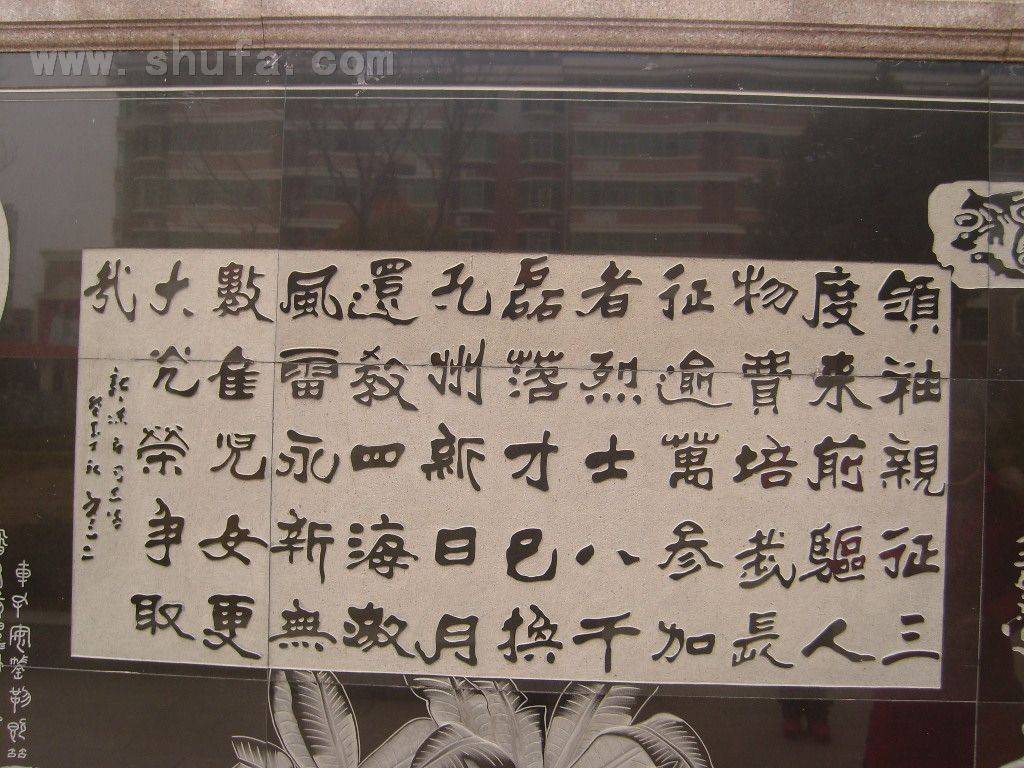 www.shufa.com
領袖親征三
度来前驅人
物費培栽長
征逾萬参加
者烈士八千
磊落才已換
九州新日月
還教四海激
風雷永新無
數佳児女更
大光榮争取
哉